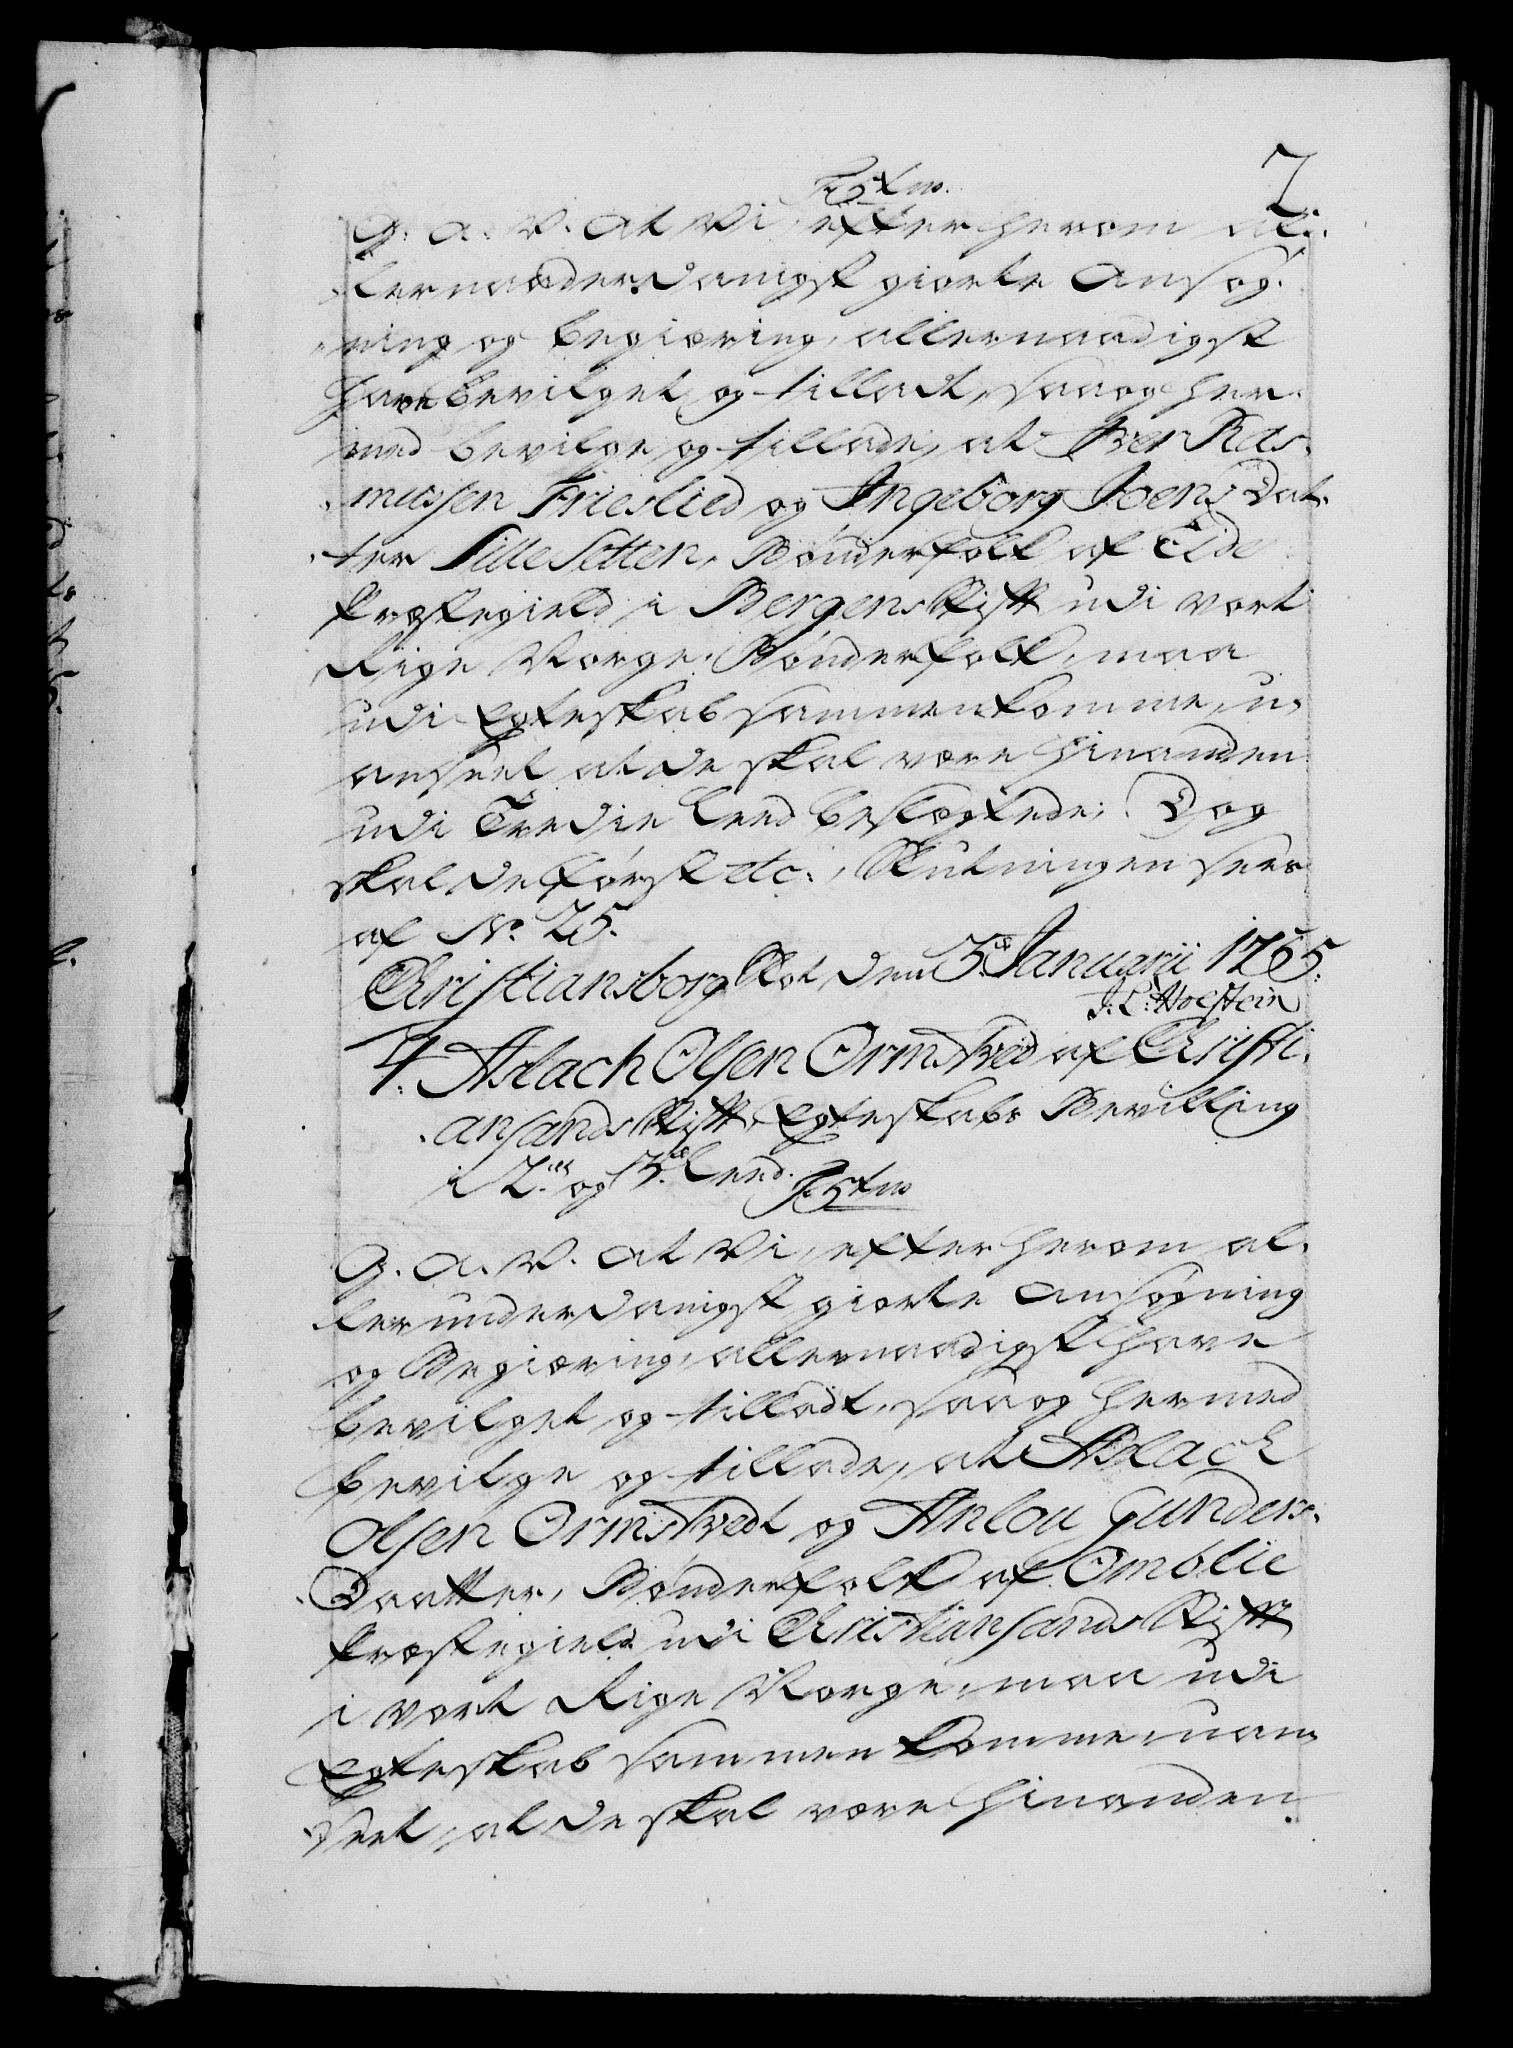 7
F 5te m.
G. A. V. at Vi, efter herom al¬
lerunderdanigst giorte Ansøg¬
ning og Begiering, allernaadigst
have bevilget og tilladt, saa og her¬
med bevilge og tillade, at Iver Ras¬
mussen Frieslied og Ingeborg Joens Dat¬
ter Sille Setten, Bønderfolk af Eids
Præstegield i Bergens Stift udi vort
Rige Norge. Bønderfolk, maa
udi Egteskab sammenkomme, u¬
anseet at de skal være hinanden
udi Tredie Leed beslægtede; Dog
skal de først etc:, Slutningen sees
af No. 25.
Christiansborg Slot, den 3te Januarii 1765.
J. L: Holstein
4. Aslach Olsen Ormstved af Christi¬
ansands Stift, Egteskabs Bevilling
i 2det og 3die Leed.
F 5te m
G. A. V. at Vi, efter herom al¬
lerunderdanigst giorte Ansøgning
og Begiering, allernaadigst have
bevilget og tilladt, saa og hermed
bevilge og tillade, at Aslach
Olsen Ormstvedt og Anlou Gunders¬
Daatter, Bønderfolk af Omblie
Præstegield udi Christiansands Stift
i vort Rige Norge, maa udi
Egteskab sammenkomme, uan¬
seet, at de skal være hinanden